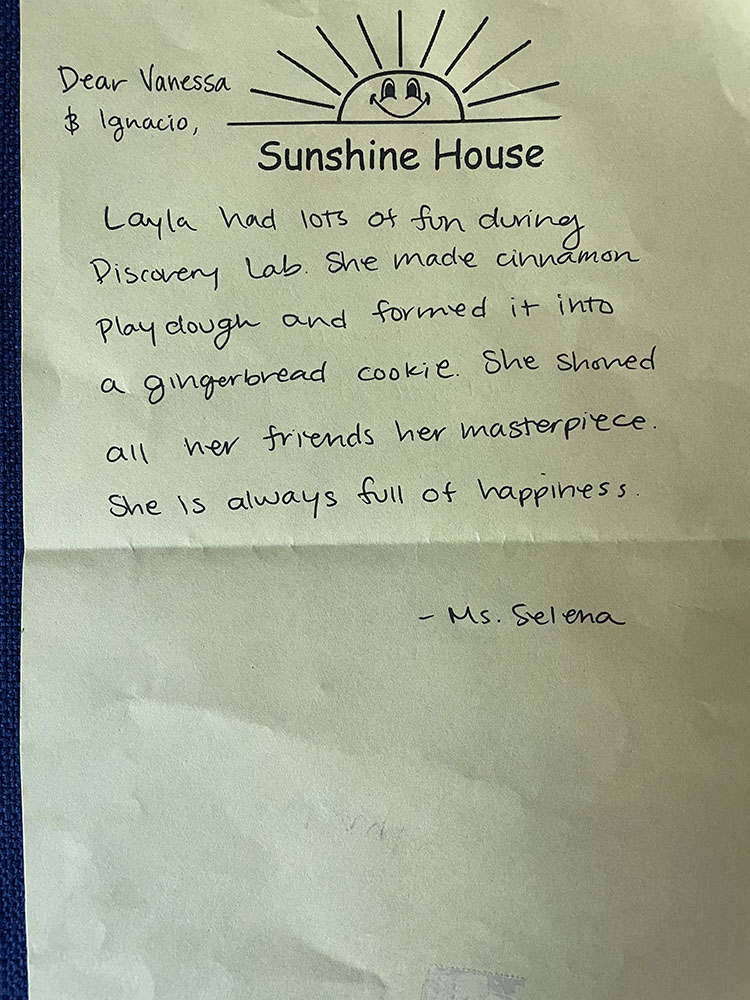 Dear Vanessa
& Ignacio,
Sunshine House
Layla had lots of fun during
Discovery Lab. She made cinnamon
Playdough and formed it into
a gingerbread cookie. She showed
all her friends her masterpiece.
She is always full of happiness.
- Ms. Selena